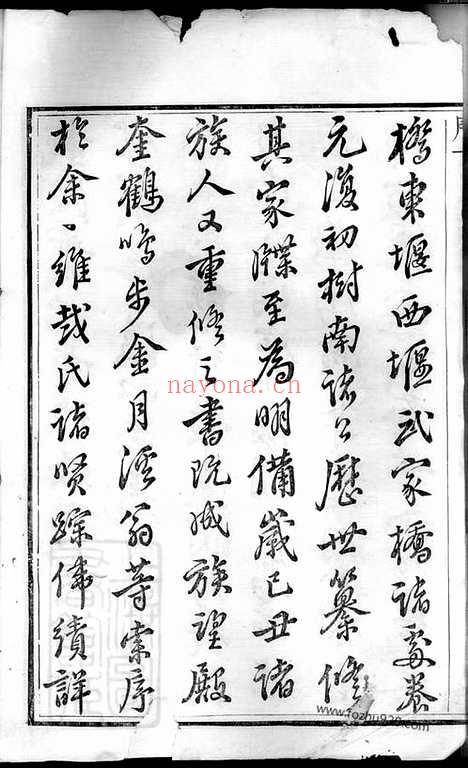 橋東堰西堰武家橋諸處眷
元復初樹南諸公歷世纂修
其家牒至為明備歲己丑諸
族人又重修之書既成族望殿
奎鶴鳴步金月溪翁等索序
於余、維戢氏諸賢踪偉績詳
序一
nayona.cn
www.fozhu920.com